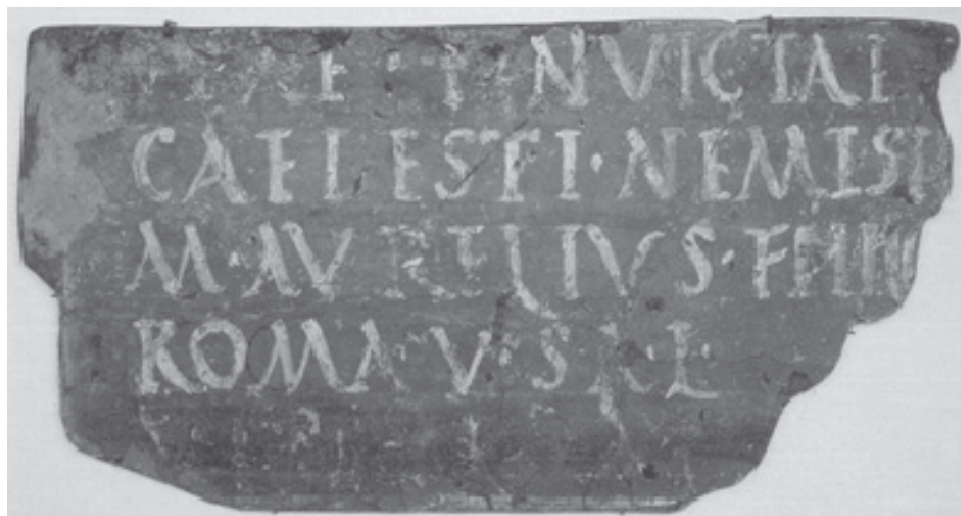 DEAE INVICTAE
CAELESTI · NEMESI
M · AVRELIVS · FHILO
ROMA · V · S · A · L ·